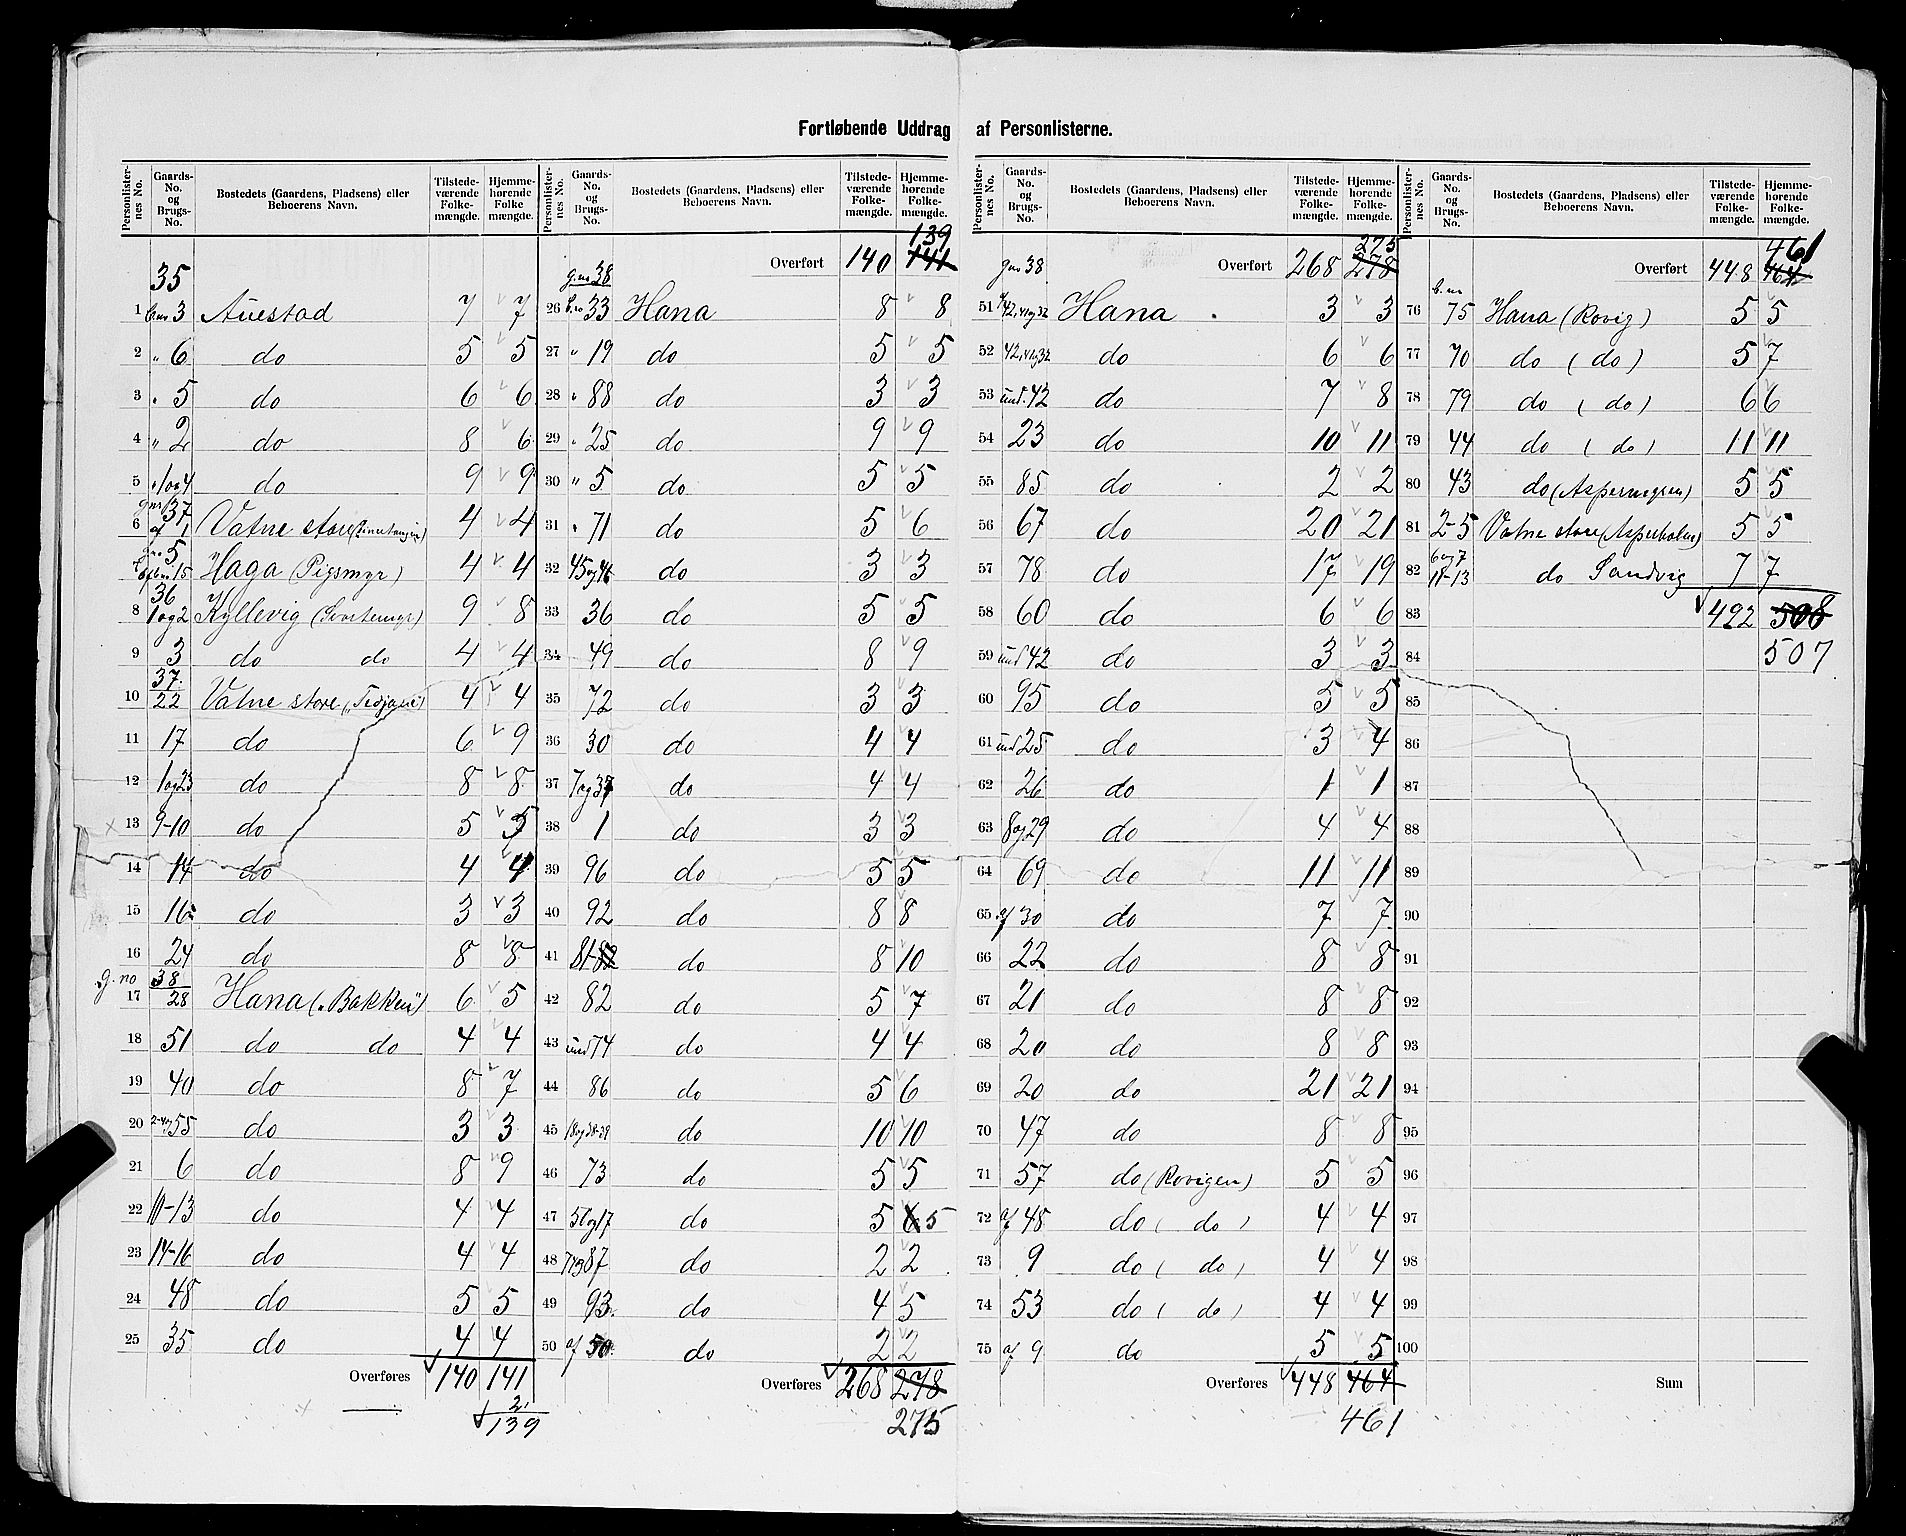 Fortløbende Uddrag af Personlisterne.
Personlister-nes No. Gaards-No. og Brugs-No. Bostedets (Gaardens, Pladsens) eller Beboerens Navn. Tilstede-værende Folke-mængde. Hjemme-hørende Folke mængde.
35
1 b.no 3 Auestad 7 7
2 " 6 do 5 5
3 " 5 do 6 6
4 " 2 do 8 6
5 " 1 og 4 do 9 9
gno 37
6 af 1 Vatne store 4 4
gno 5
af bno 15 Haga (Pigsmyr) 4 4
36
8 1 og 2 Kyllevig (Svortemyr) 9 8
9 3 do do 4 4
37
10 22 Vatne store 4 4
11 17 do 6 9
12 1 og 23 do 8 8
13 9-10 do 5 5
14 14 do 4 4
15 16 do 3 3
16 24 do 8 8
g. no 38
17 28 Hana („Bakken") 6 5
18 51 do do 4 4
19 40 do 8 7
20 2-4 og 55 do 3 3
21 6 do 8 9
22 11-13 do 4 4
23 14-16 do 4 4
24 48 do 5 5
25 35 do 4 4
Overføres 140 141
2
139
Personlister-nes No. Gaards-No. og Brugs-No. Bostedets (Gaardens, Pladsens) eller Beboerens Navn. Tilstede-værende Folke-mængde. Hjemme-hørende Folke-mængde.
139
g.no 38 Overført 140 141
26 b.no 33 Hana 8 8
27 " 19 do 5 5
28 " 88 do 3 3
29 " 25 do 9 9
30 " 5 do 5 5
31 " 71 do 5 6
32 45 og 46 do 3 3
33 36 do 5 5
34 49 do 8 9
35 72 do 3 3
36 30 do 4 4
37 7 og 37 do 4 4
38 1 do 3 3
39 96 do 5 5
40 92 do 8 8
41 81-82 do 8 10
42 82 do 5 7
43 und 74 do 4 4
44 86 do 5 6
45 18 og 38-39 do 10 10
46 73 do 5 5
47 56 og 17 do 5 6 5
48 7 og 87 do 2 2
49 93 do 4 5
50 af 50 do 2 2
Overføres 268 278
275
Personlister-nes No. Gaards-No. og Brugs-No. Bostedets (Gaardens, Pladsens) eller Beboerens Navn. Tilstede-værende Folke-mængde. Hjemme-hørende Folke-mængde.
275
gno 38 Overført 268 278
51 42, 41 og 32 Hana 3 3
52 42, 41 og 32 do 6 6
53 und. 42 do 7 8
54 23 do 10 11
55 85 do 2 2
56 67 do 20 21
57 78 do 17 19
58 60 do 6 6
59 und 42 do 3 3
60 95 do 5 5
61 und 25 do 3 4
62 26 do 1 1
63 8 og 29 do 4 4
64 69 do 11 11
65 af 30 do 7 7
66 22 do 8 8
67 21 do 8 8
68 20 do 8 8
69 20 do 21 21
70 47 do 8 8
71 57 do (Rovigen) 5 5
72 af 48 do ( do ) 4 4
73 9 do ( do ) 4 4
74 53 do ( do ) 4 4
75 af 9 do 5 5
Overføres 448 464
461
Personlister-nes No. Gaards-No. og Brugs-No. Bostedets (Gaardens, Pladsens) eller Beboerens Navn. Tilstede-værende Folke-mængde. Hjemme-hørende Folke-mængde.
461
Overført 448 464
b.no
76 75 Hana (Rovig) 5 5
77 70 do ( do ) 5 7
78 79 do ( do ) 6 6
79 44 do ( do ) 11 11
80 43 do 5 5
81 2-5 Vatne store (Asperholen) 5 5
82 6 og 7 11-13 do Sandvig 7 7
83 492 508
84 507
85
86
87
88
89
90
91
92
93
94
95
96
97
98
99
100
Sum